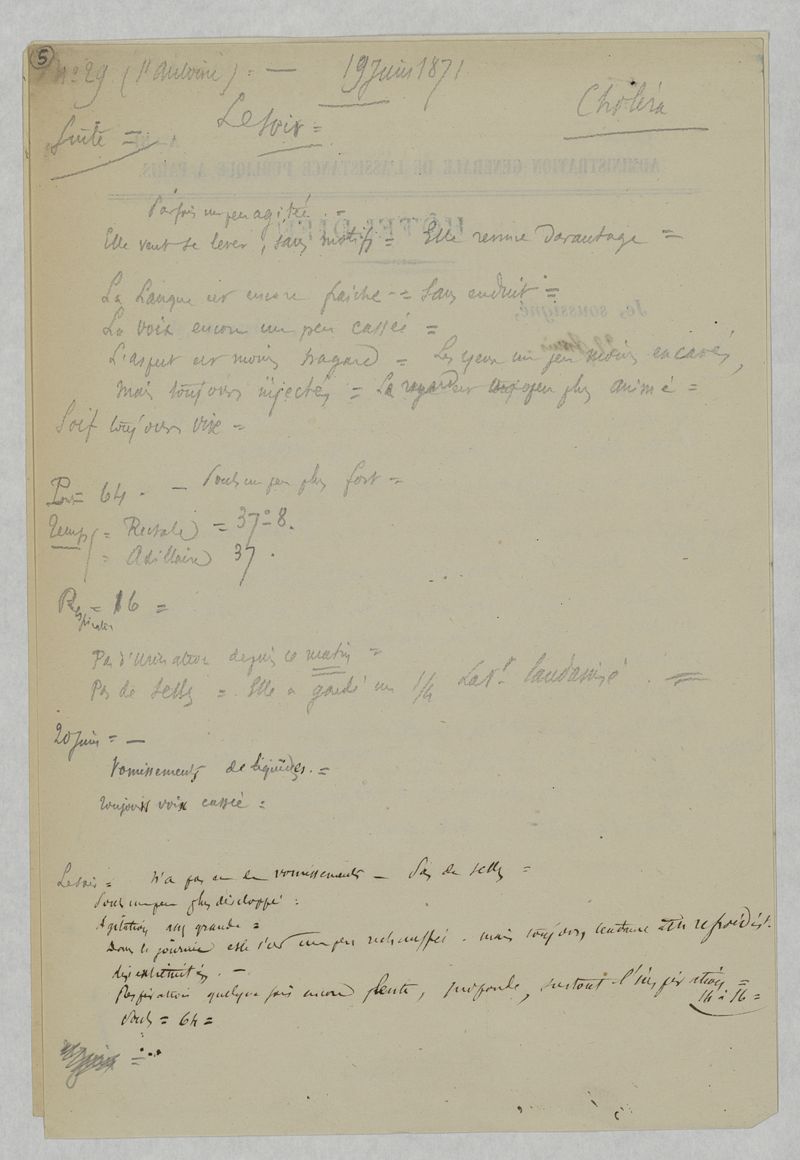 5
N° 29 (St Antoine) = — 19 Juin 1871
Choléra
Suite = Le soir =
Parfois un peu agitée =
Elle veut se lever, sans motifs = Elle remue davantage =
La Langue est encore fraiche -= Sans enduit =
La voix encore un peu cassée =
L'aspect est moins hagard = Les yeux un peu moins encavés,
mais toujours injectés = Le regard est un peu plus animé =
Soif toujours vive =
Pouls = 64. — Pouls un peu plus fort =
Temp = Rectale = 37° 8.
= Axillaire 37.
Respiration = 16 =
Pas d'urination depuis ce matin =
Pas de selles = Elle a gardé un 1/4 Lavt laudanisé. =
20 Juin = —
Vomissements de liquides. =
toujours voix cassée =
Le soir = N'a pas eu de vomissements — Pas de selles =
Pouls un peu plus développé =
Agitation assez grande =
Dans la journée elle s'est un peu rechauffée. mais toujours tendance au refroidist.
des extrémités. —
Respiration quelque fois encore lente, profonde, surtout l'inspiration =
14 à 16 =
Pouls = 64 =
ADMINISTRATION GÉNÉRALE DE L'ASSISTANCE PUBLIQUE A PARIS.
HÔTEL-DIEU
Je, soussigné,